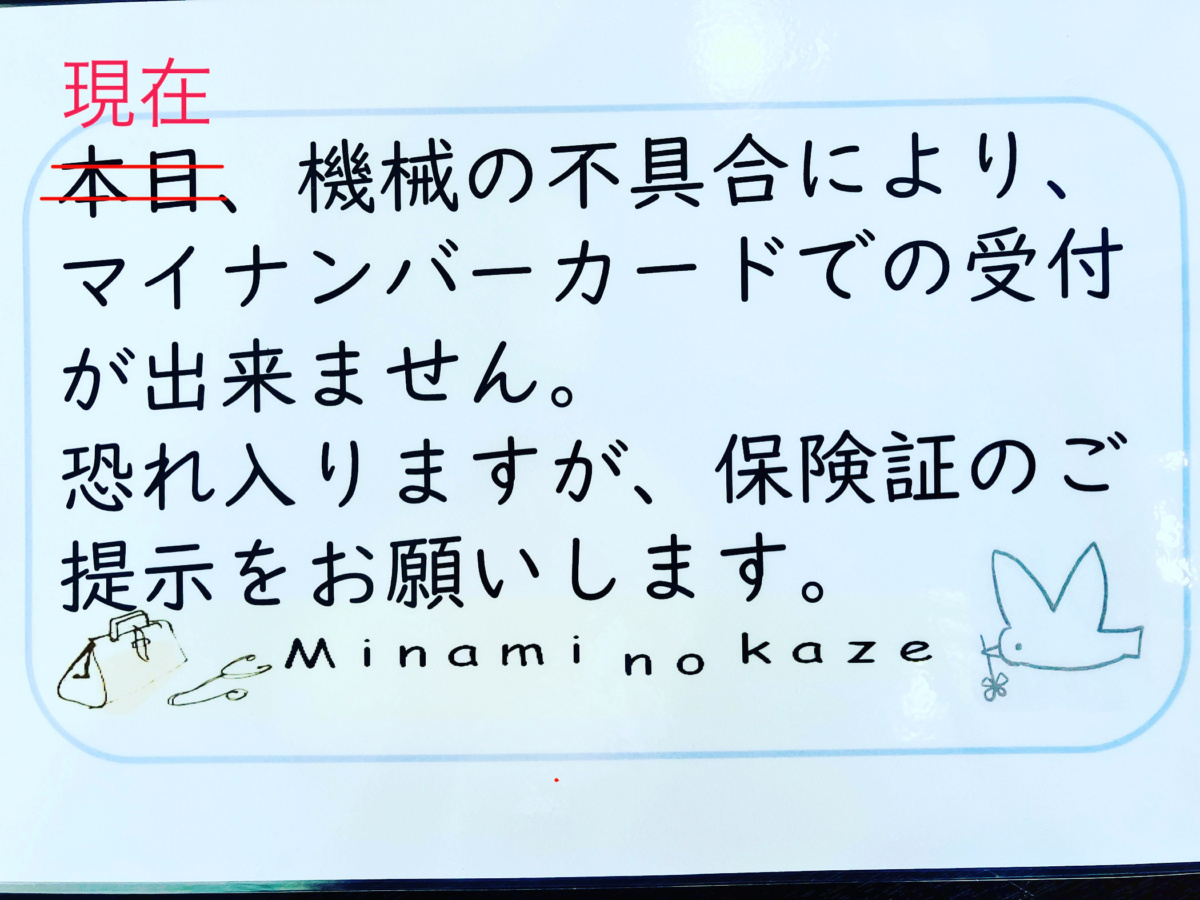 現在
本日、機械の不具合により、
マイナンバーカードでの受付
が出来ません。
恐れ入りますが、保険証のご
提示をお願いします。
Minami no kaze